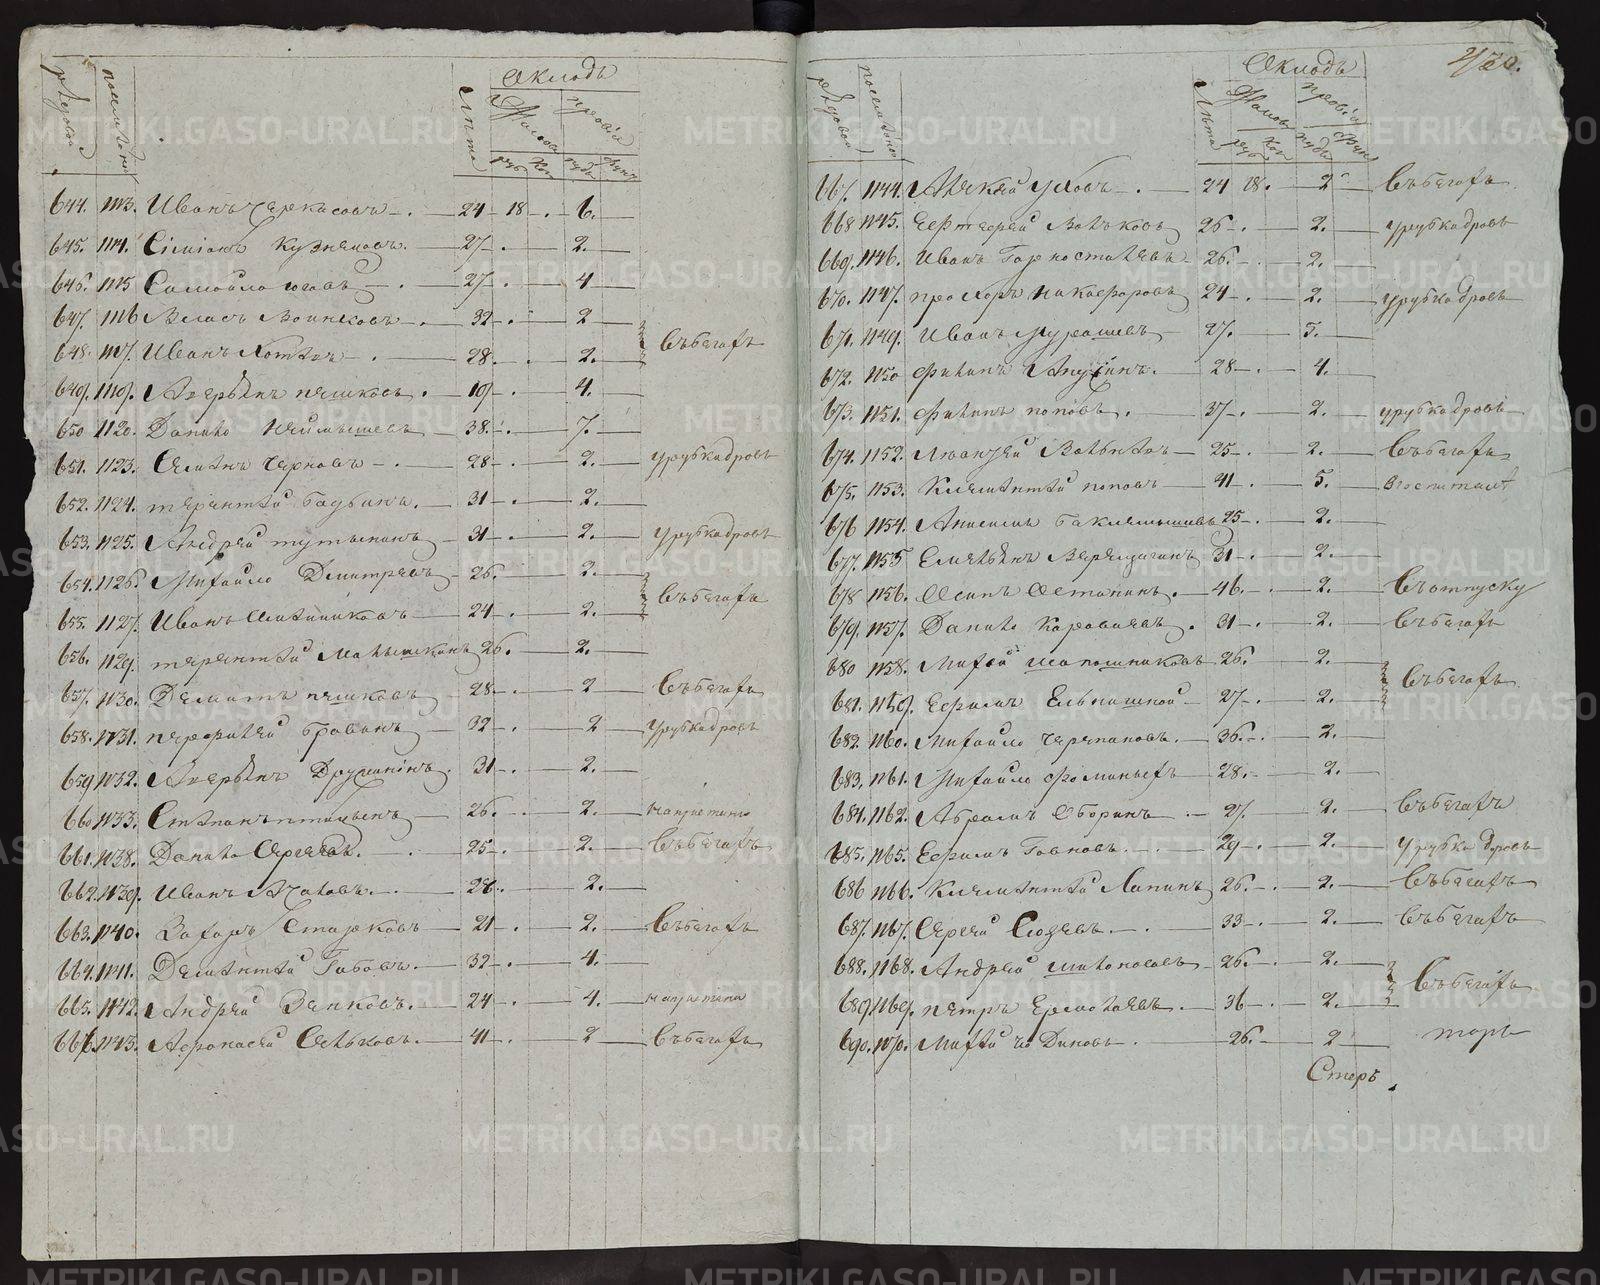 рядовое
поимянное
Лета
Окладъ
Жалов
провiа
руб
коп
пуды
фун
644. 1113. Иванъ Черкасовъ 24 18 6.
645. 1114. Сiмiонъ Кузнецовъ 27 2.
646. 1115 Самойло юговъ 27 4
647. 1116 Власъ Воинковъ 32 2
648. 1117. Иванъ Хотинъ 28 2. Въбегахъ
649. 1119. Аверьянъ пешковъ 19 4.
650 1120. Данило 38. 7.
651. 1123. Семенъ Черновъ 28 2. урубкидровъ
652. 1124. терентей Бадьинъ. 31 2.
653. 1125. Андрей тутынинъ 31 2. урубкидровъ
654. 1126. Михайло Дмитревъ 26. 2. Въбегахъ
655. 1127. Иванъ 24 2.
656. 1129. терентей Малышкинъ 26. 2.
657. 1130. Дементъ пешковъ 28 2 Въбегахъ
658. 1131. перфилей Гравинъ 32 2 урубкидровъ
659 1132. Аверьянъ Друманiнъ 31 2.
660 1133. Степанъ птицынъ 26. 2.
661. 1138. Данило Сергеевъ. 25 2. Въбегахъ
662. 1139. Иванъ Ачаловъ. 28. 2.
663. 1140. Захаръ Стариковъ 21 2. Въбегахъ
664. 1141. Дементей Бабовъ. 32 4.
665. 1142. Андрей Зенковъ. 24 4.
666. 1143. Афонасей Сельковъ. 41 2 Въбегахъ
450.
рядовое
поимянное
Лета
Окладъ
Жалов
провiа
руб
коп
пуды
фун
667. 1144. Алекей Усковъ 24 18. 2 Въбегахъ
668 1145. Ефтефей Волковъ 26 2. урубкидровъ
669. 1146. Иванъ Горностаевъ 26. 2.
670. 1147. прохоръ Никифоровъ 24 2. урубкидровъ
671. 1149. Иванъ Мурашевъ 27. 5.
672. 1150 филипъ Лапухинъ. 28 4.
673. 1151. филипъ поповъ. 37 2. урубкидровъ
674. 1152. 25 2. Въбегахъ
675. 1153. Клементей поповъ 41 5.
676 1154. Анисимъ Баклемышевъ 25 2.
677. 1155 Емельянъ Верещагинъ 31 2.
678 1156. Осипъ Остапинъ. 46. 2. Въотпуску
679. 1157. Данило Караваевъ. 31 2. Въбегахъ
680 1158. Матвей шапошниковъ 26. 2. Въбегахъ
681. 1159. Ефимъ Ельпашной 27 2.
682. 1160. Михайло Черепановъ. 36. 2.
683. 1161. Михайло Фоминыхъ 28. 2.
684. 1162. Абрамъ Оборинъ 27. 2. Въбегахъ
685. 1165. Ефимъ Говновъ. 29 2. урубки дровъ
686 1166. Клементей Лапинъ 26. 2. Въбегахъ
687. 1167. Сергей Сюзевъ. 33 2. Въбегахъ
688. 1168. Андрей 26. 2. Въбегахъ
689 1169. петръ Ермолаевъ. 36 2.
690. 1170. Матвей 26. 2
Стеръ